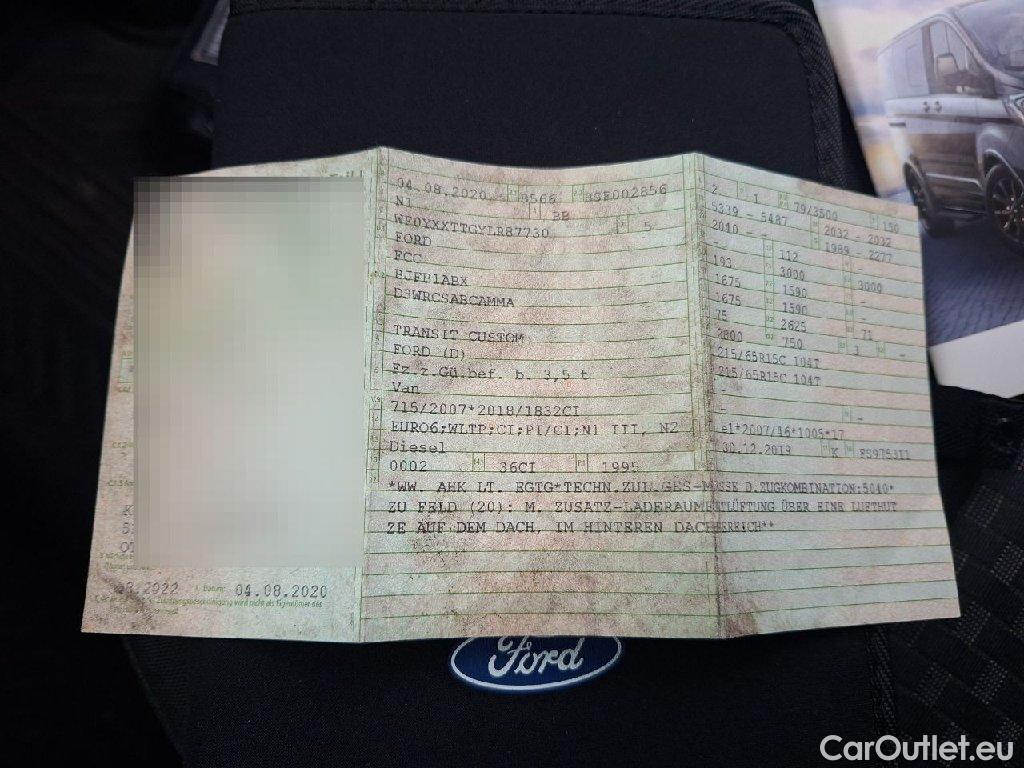 04.08.2020 8566 BSE002856
N1 BB
WF0YXXTTGYLR87730 5
FORD
FCC
BJFB1ABX
D3WRCSABCAMMA
TRANSIT CUSTOM
FORD (D)
Fz.z.Gü.bef. b. 3,5 t
Van
715/2007*2018/1832CI
EURO6;WLTP;CI;PI/CI;N1 III, N2
Diesel
0002 36CI 1995
*WW. AHK LT. EGTG*TECHN.ZUL.GES-MASSE D.ZUGKOMBINATION:5040*
ZU FELD (20): M. ZUSATZ-LADERAUMENTLÜFTUNG ÜBER EINE LUFTHUT
ZE AUF DEM DACH, IM HINTEREN DACHBEREICH**
2 1 79/3500 150
5339 - 5487 2032 - 2032
2010 - - 1989 - 2277
- 112 -
193 3000 3000
1675 1590 -
1675 1590 -
75 2625 71
2800 750 3 -
215/65R15C 104T
215/65R15C 104T
-
- -
e1*2007/46*1005*17
30.12.2019 K FS975311
08.2022 04.08.2020
Ford
CarOutlet.eu